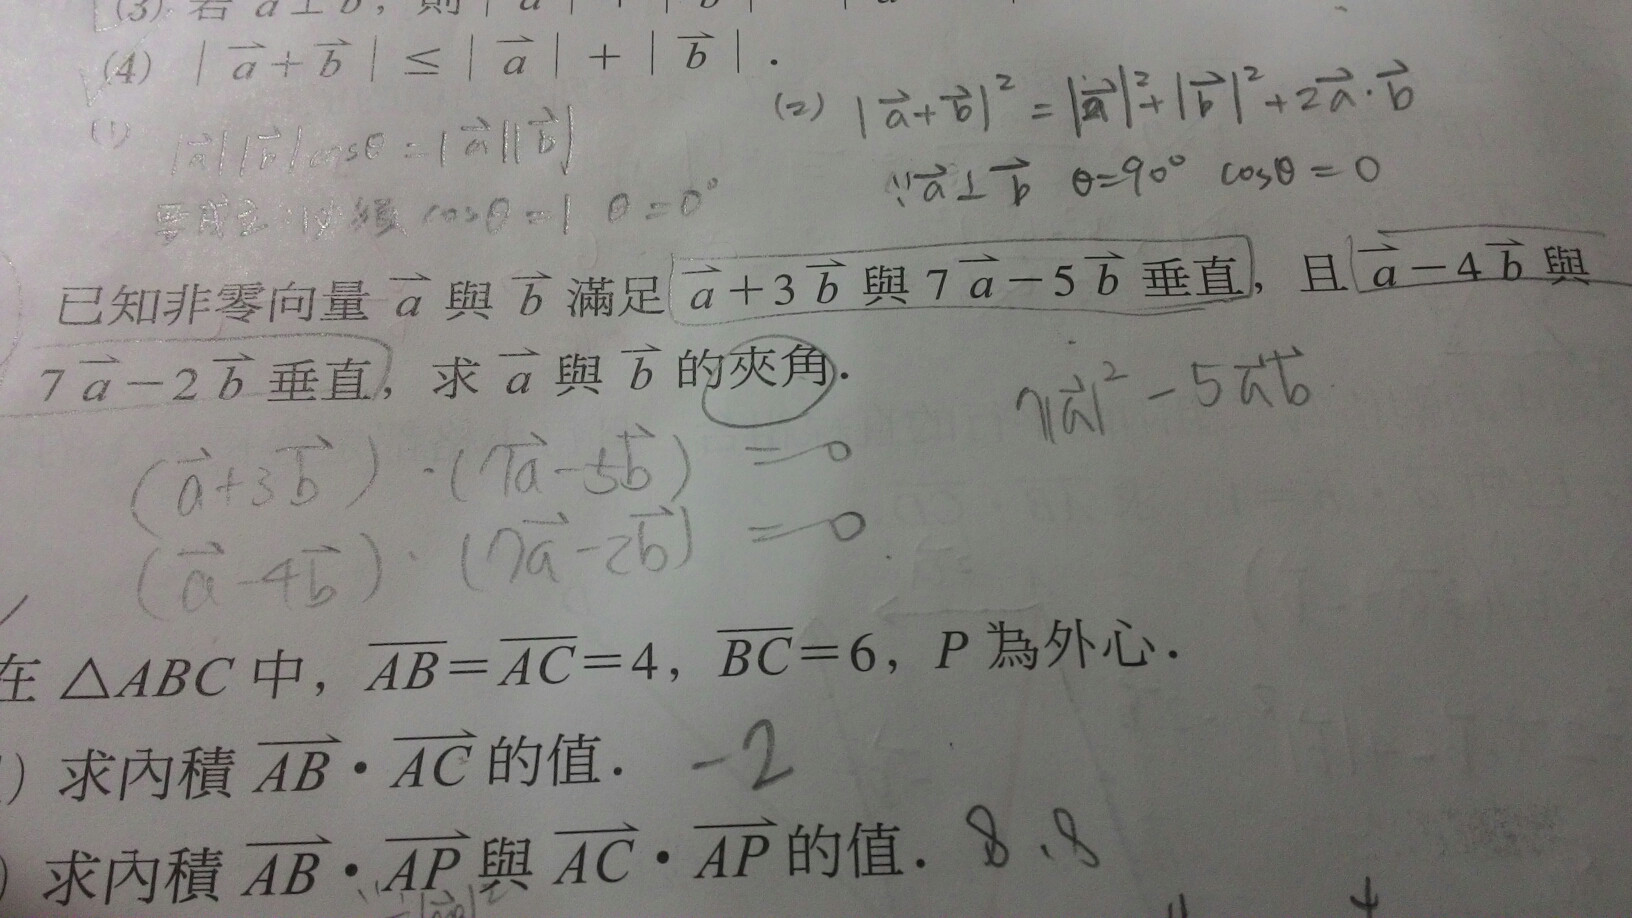 (3) 若 a⊥b, 則
(4) |a⃗+b⃗| ≤ |a⃗| + |b⃗|.
(1) |a⃗||b⃗|cosθ=|a⃗||b⃗|
cosθ=1 θ=0°
(2) |a⃗+b⃗|²=|a⃗|²+|b⃗|²+2a⃗·b⃗
∵a⃗⊥b⃗ θ=90° cosθ=0
已知非零向量 a⃗ 與 b⃗ 滿足 a⃗+3b⃗ 與 7a⃗-5b⃗ 垂直, 且 a⃗-4b⃗ 與
7a⃗-2b⃗ 垂直, 求 a⃗ 與 b⃗ 的夾角.
7|a⃗|²-5a⃗b⃗
(a⃗+3b⃗)·(7a⃗-5b⃗)=0
(a⃗-4b⃗)·(7a⃗-2b⃗)=0
在 △ABC 中, A̅B̅=A̅C̅=4, B̅C̅=6, P 為外心.
) 求內積 AB⃗·AC⃗ 的值. -2
) 求內積 AB⃗·AP⃗ 與 AC⃗·AP⃗ 的值. 8、8